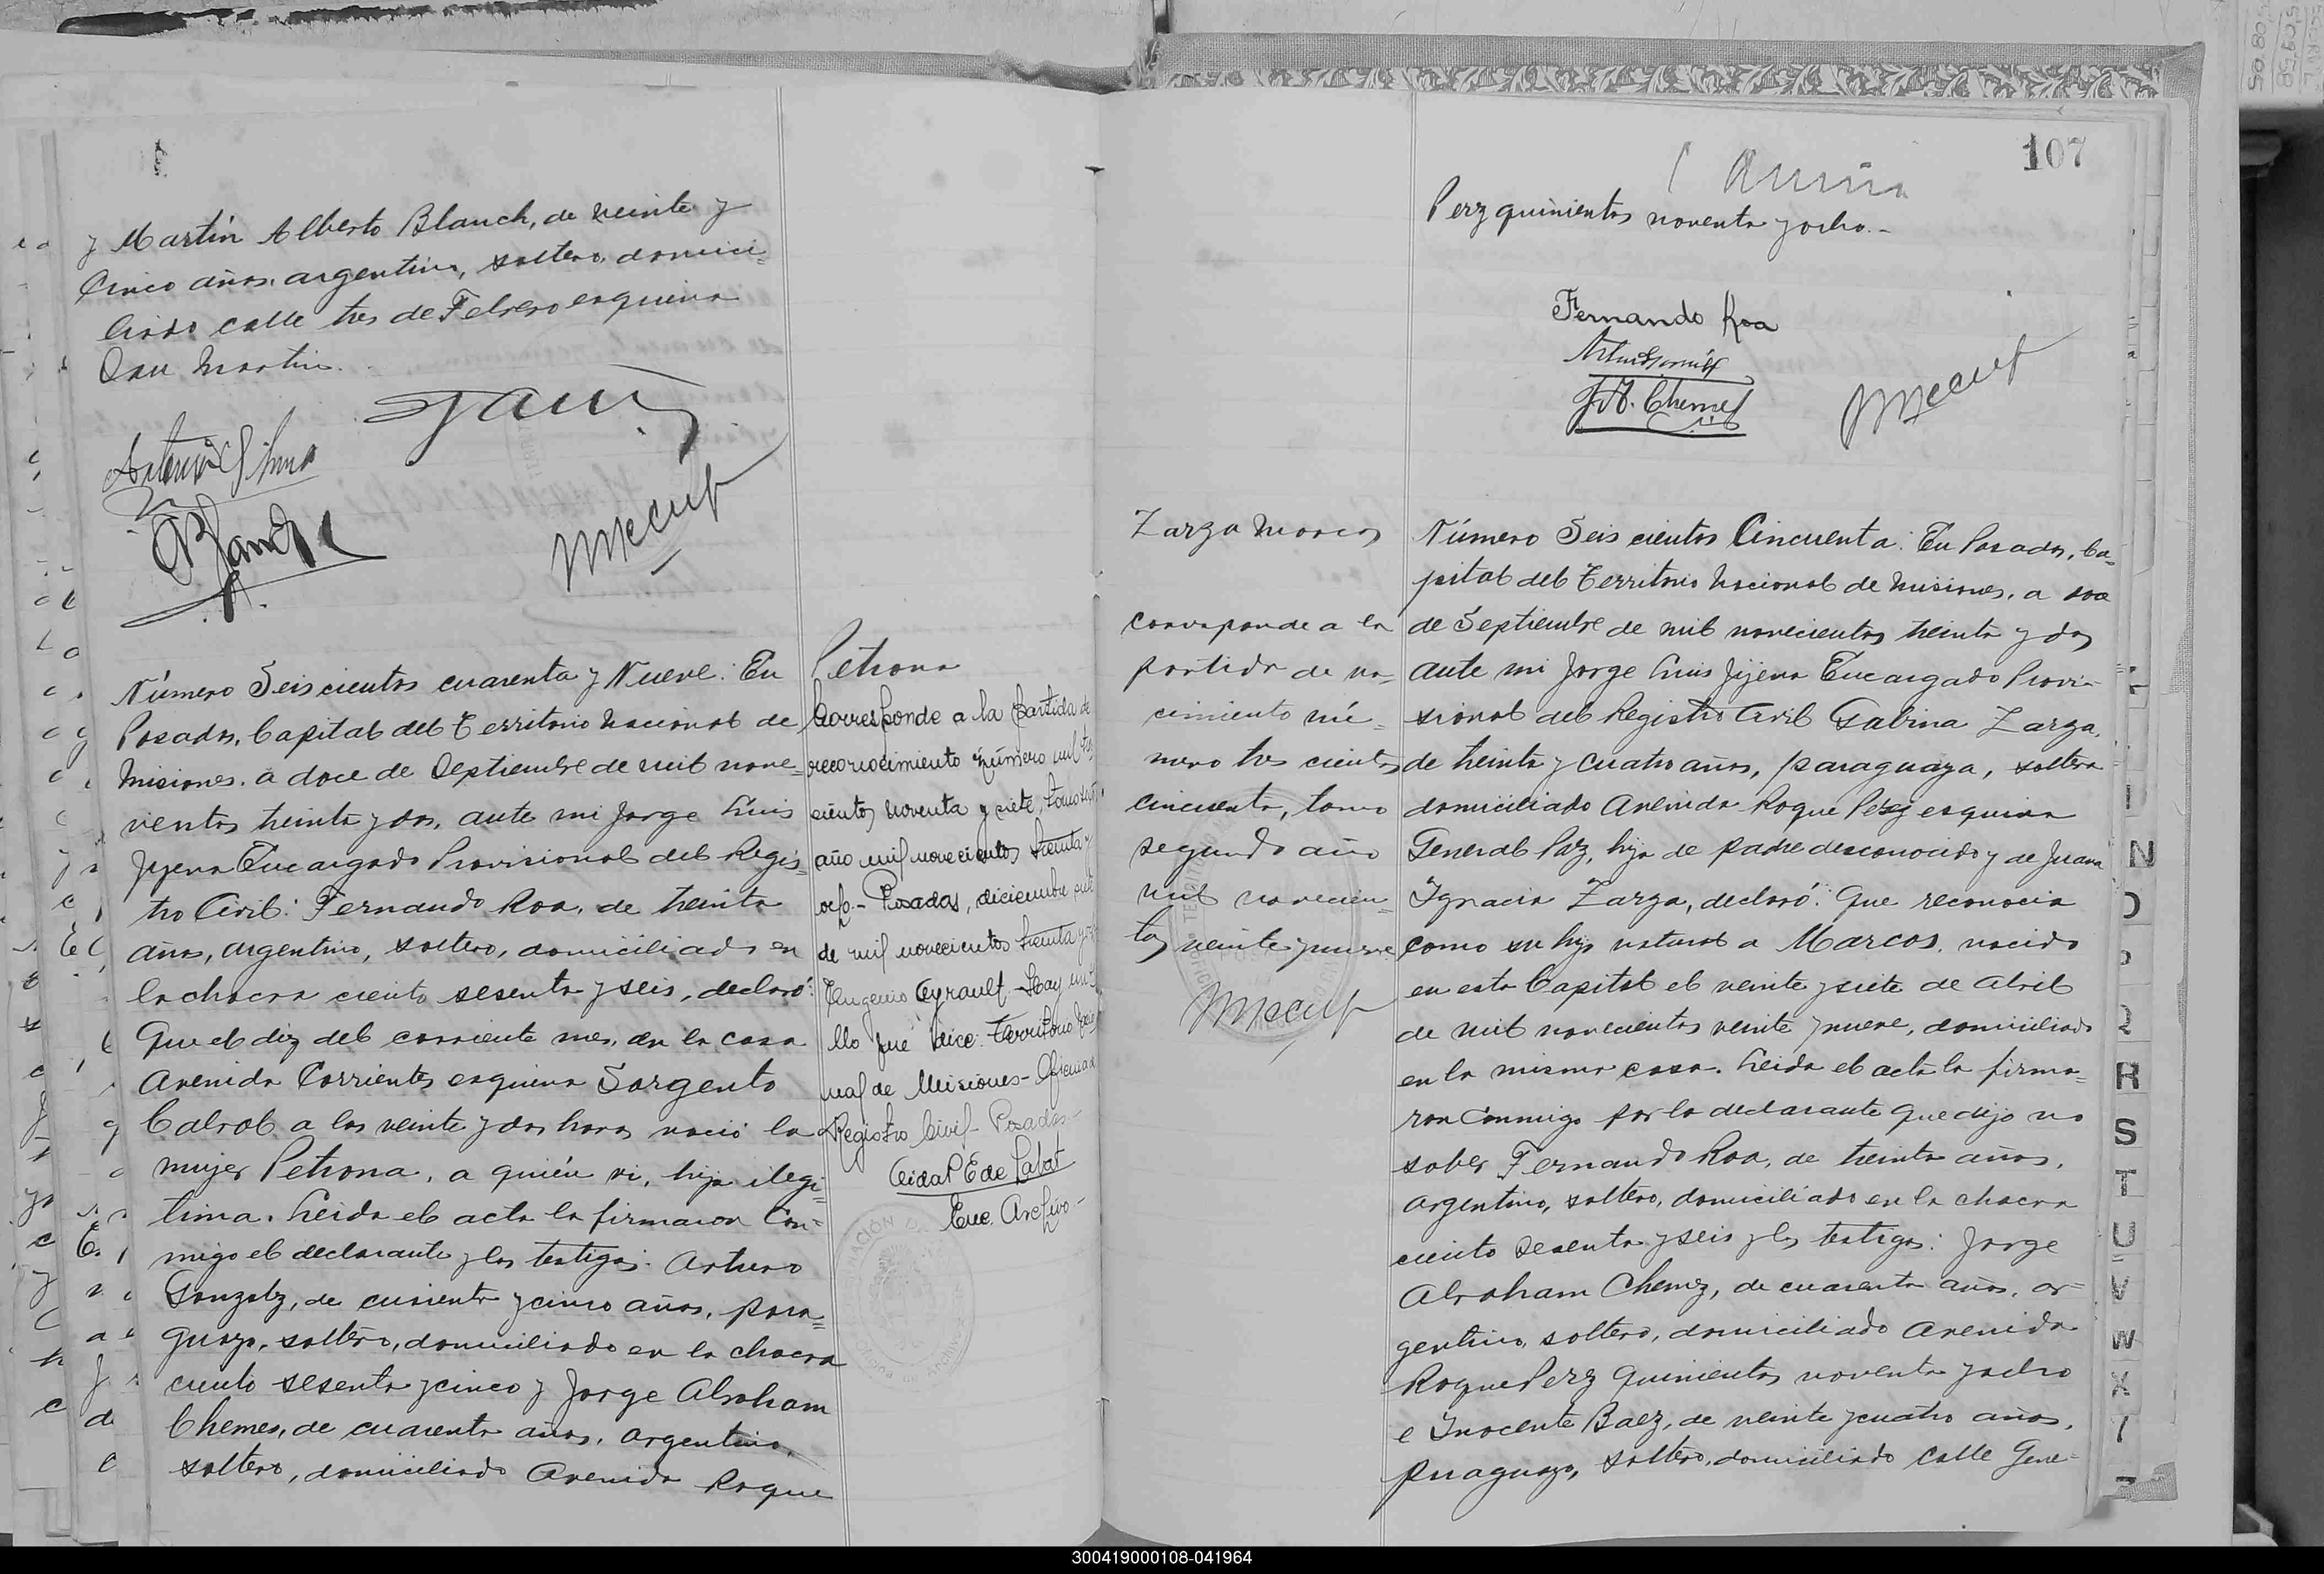 y Martín Alberto Blanch, de veinte y
cinco años, argentino, soltero, domici=
liado calle tres de Febrero esquina
San Martín.
Blanch
Número Seiscientos cuarenta y Nueve: En
Posadas, Capital del Territorio Nacional de
Misiones, a doce de Septiembre de mil nove=
cientos treinta y dos, ante mi Jorge Luis
Jijena Encargado Provisional del Regis=
tro Civil: Fernando Roa, de treinta
años, argentino, soltero, domiciliado en
la chacra ciento sesenta y seis, declaró:
Que el diez del corriente mes, en la casa
Avenida Corrientes esquina Sargento
Cabral a las veinte y dos horas nació la
mujer Petrona, a quién vi, hija ilegi=
tima. Leida el acta la firmaron Con=
migo el declarante y los testigos: Arturo
Gonzalez, de cuarenta y cinco años, para=
guayo, soltero, domiciliado en la chacra
ciento sesenta y cinco y Jorge Abraham
Chemes, de cuarenta años, argentino,
soltero, domiciliado Avenida Roque
Petrona
Corresponde a la partida de
reconocimiento número mil
cientos noventa y siete, tomo
año mil novecientos treinta y
ocho - Posadas, diciembre
de mil novecientos treinta y
Eugenio Eyrault - Hay un
llo que dice: Territorio
nal de Misiones - Oficina
Registro Civil - Posadas -
Enc. Archivo -
107
Perez quinientos noventa y ocho.-
Fernando Roa
J. A. Chemes
Zarza Marcos
corresponde a la
partida de na=
cimiento nú=
mero tres cientos
cincuenta, tomo
segundo año
mil novecien=
tos veinte y nueve
Número Seis cientos Cincuenta: En Posadas, Ca=
pital del Territorio Nacional de Misiones, a doce
de Septiembre de mil novecientos treinta y dos
ante mi Jorge Luis Jijena Encargado Provi=
sional del Registro Civil Gabina Zarza,
de treinta y cuatro años, paraguaya, soltera
domiciliado Avenida Roque Perez esquina
General Paz, hija de padre desconocido y de Juana
Ignacia Zarza, declaró: Que reconocia
como su hijo natural a Marcos, nacido
en esta Capital el veinte y siete de Abril
de mil novecientos veinte y nueve, domiciliado
en la misma casa. Leida el acta la firma=
ron Conmigo por la declarante que dijo no
saber Fernando Roa, de treinta años,
argentino, soltero, domiciliado en la chacra
ciento sesenta y seis y los testigos: Jorge
Abraham Chemez, de cuarenta años, ar=
gentino, soltero, domiciliado Avenida
Roque Perez quinientos noventa y ocho
e Inocente Baez, de veinte y cuatro años,
paraguayo, soltero, domiciliado calle Gene=
N
R
S
T
U
V
W
X
300419000108-041964